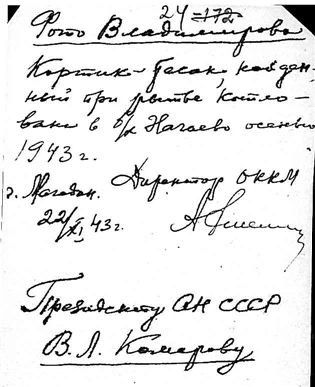 24 172
Фото Владимирова
Кортик-тесак, найден-
ный при рытье котло-
вана в б/х Нагаево осенью
1943 г.
г. Магадан. Директор ОККМ
22/XI 43 г.
Президенту АН СССР
В. Л. Комарову